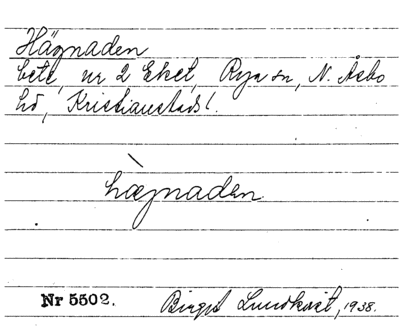 Hägnaden
bete, nr 2 Eket, Rya sn, N. Åsbo
hd, Kristianstads l.
hægnaden
Nr 5502. Birgit Lundkvist, 1938.